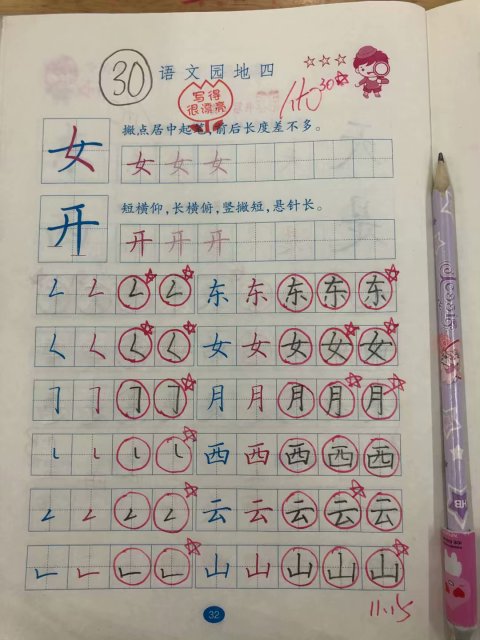 30 语文园地四
写得
很漂亮
30
女 撇点居中起笔,前后长度差不多。
女 女 女
开 短横仰,长横俯,竖撇短,悬针长。
开 开 开
𠃋 𠃋 𠃋 𠃋 东 东 东 东 东
𡿨 𡿨 𡿨 𡿨 女 女 女 女 女
𠃌 𠃌 𠃌 𠃌 月 月 月 月 月
㇄ ㇄ ㇄ ㇄ 西 西 西 西 西
𠃋 𠃋 𠃋 𠃋 云 云 云 云 云
𠃊 𠃊 𠃊 𠃊 山 山 山 山 山
32
11.15